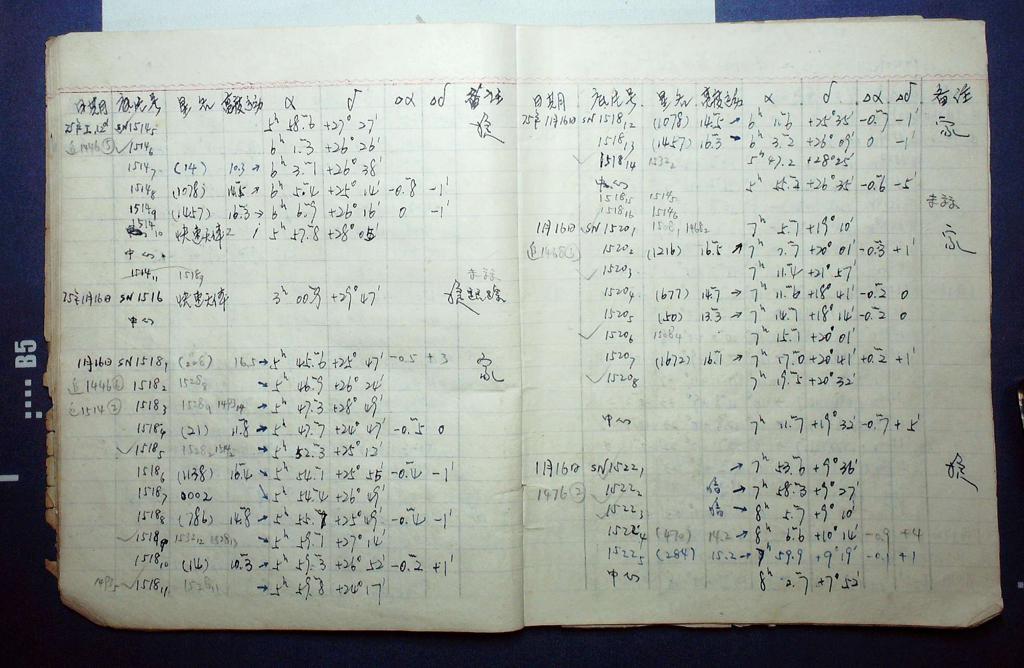 日期 底片号 星名 亮度 运动 α δ Δα Δδ 备注
75年1月12日 SN1514₅ 5ʰ 58.ᵐ6 +27° 27′
追1446⑤ ✓1514₆ 6ʰ 1.ᵐ3 +26° 26′
1514₇ (14) 10.3 → 6ʰ 3.ᵐ1 +26° 38′
1514₈ (1078) 14.5 → 6ʰ 5.ᵐ4 +25° 14′ -0.ᵐ8 -1′
1514₉ (1457) 16.3 → 6ʰ 6.ᵐ9 +26° 16′ 0 -1′
1514₁₀ 快速天体2 5ʰ 57.ᵐ8 +28° 05′
中心
1514₁₁ 1518₇
75年1月16日 SN 1516 快速天体 3ʰ 00.ᵐ9 +29° 47′
中心
1月16日 SN1518₁ (206) 16.5 → 5ʰ 45.ᵐ6 +25° 47′ -0.5 +3
追1446⑥ 1518₂ 1528₈ → 5ʰ 46.ᵐ9 +26° 24′
追1514② 1518₃ 1528₉ 1493₁₄ → 5ʰ 47.ᵐ3 +28° 49′
1518₄ (21) 11.8 → 5ʰ 47.ᵐ7 +24° 47′ -0.ᵐ5 0
✓1518₅ → 5ʰ 52.ᵐ3 +25° 12′
1518₆ (1138) 16.4 → 5ʰ 54.ᵐ1 +25° 55′ -0.ᵐ4 -1′
1518₇ 0002 5ʰ 54.ᵐ4 +26° 49′
1518₈ (786) 14.8 → 5ʰ 55.ᵐ7 +25° 49′ -0.ᵐ4 -1′
✓1518₉ 1532₁₂ 1528₁₃ → 5ʰ 59.ᵐ1 +27° 14′
1518₁₀ (14) 10.3 → 5ʰ 59.ᵐ3 +26° 52′ -0.ᵐ2 +1′
1493₅ ✓1518₁₁ 1528₁₁ → 5ʰ 59.ᵐ8 +24° 17′
日期 底片号 星名 亮度 运动 α δ Δα Δδ 备注
75年1月16日 SN 1518₁₂ (1078) 14.5 → 6ʰ 1.ᵐ6 +25° 35′ -0.ᵐ7 -1′
1518₁₃ (1457) 16.3 → 6ʰ 3.ᵐ2 +26° 09′ 0 -1′
✓1518₁₄ 1532₂ 5ʰ 47.ᵐ2 +28° 25′
中心 5ʰ 55.ᵐ2 +26° 35′ -0.ᵐ6 -5′
1518₁₅ 1514₅
1518₁₆ 1514₆
1月16日 SN 1520₁ 1508₁ 1468₂ 7ʰ 5.ᵐ7 +19° 10′
追1468① 1520₂ (1216) 16.5 7ʰ 7.ᵐ7 +20° 01′ -0.ᵐ3 +1′
✓1520₃ 7ʰ 11.ᵐ4 +21° 57′
1520₄ (677) 14.7 → 7ʰ 11.ᵐ6 +18° 41′ -0.ᵐ2 0
1520₅ (50) 13.3 → 7ʰ 14.ᵐ7 +18° 14′ -0.ᵐ2 0
✓1520₆ 1508₄ 7ʰ 15.ᵐ1 +20° 01′
1520₇ (1672) 16.1 → 7ʰ 17.ᵐ0 +20° 41′ +0.ᵐ2 +1′
✓1520₈ 7ʰ 19.ᵐ5 +20° 32′
中心 7ʰ 11.ᵐ7 +19° 32′ -0.ᵐ7 +5′
1月16日 SN1522₁ → 7ʰ 53.ᵐ6 +9° 36′
1476② 1522₂ → 7ʰ 58.ᵐ3 +9° 27′
✓1522₃ → 8ʰ 5.ᵐ7 +9° 10′
1522₄ (470) 14.2 → 8ʰ 6.ᵐ6 +10° 14′ -0.9 +4
1522₅ (284) 15.2 → 7ʰ 59.ᵐ9 +9° 19′ -0.1 +1
中心 8ʰ 2.ᵐ7 +7° 52′
B5